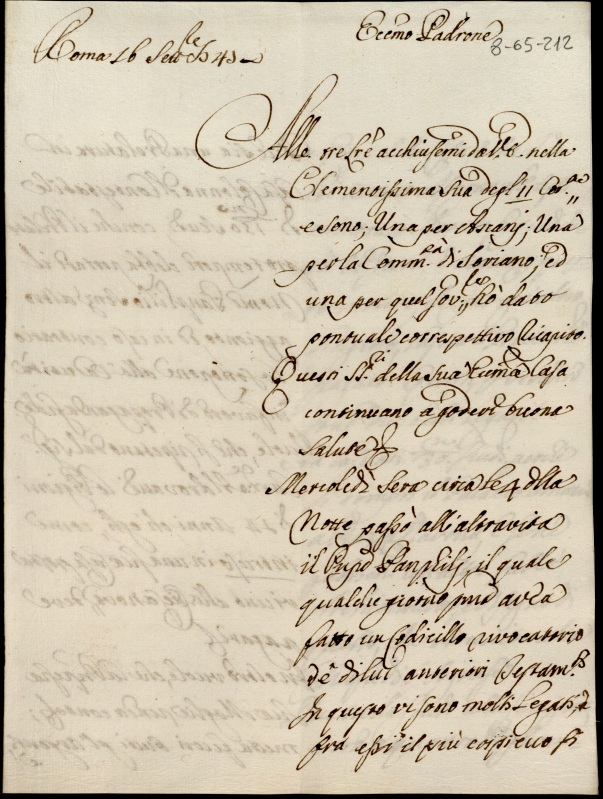 Eccmo Padrone
8-65-212
Roma 16 Settre 1741
Alle tre Lre acchiusemi da V. E. nella
Clementissima Sua degli 11 Cor.te
e sono; Una per Ascanj; Una
per la Comm.tà di Soriano; ed
una per quel Gov.re hò dato
pontuale correspettivo ricapito.
Questi SS.ri della Sua Eccma Casa
continuano a goder buona
Salute
Mercoledì Sera circa le 4 della
Notte passò all'altra vita
il Panphilj, il quale
qualche giorno pma avea
fatto un Codicillo rivocatorio
de di lui anteriori Testam.ti
In questo vi sono molti Legati, e
frà essi il più cospicuo si